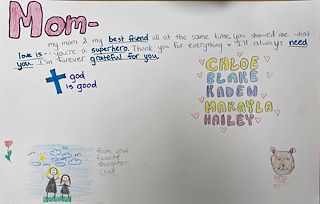 Mom-
my mom is my best friend all at the same time. you showed me what
love is -- you're a superhero. Thank you for everything & I'll always need
you. I'm forever grateful for you
god
is good
CHLOE
BLAKE
KADEN
MAKAYLA
HAILEY
from your
favorite
daughter,
Chloe